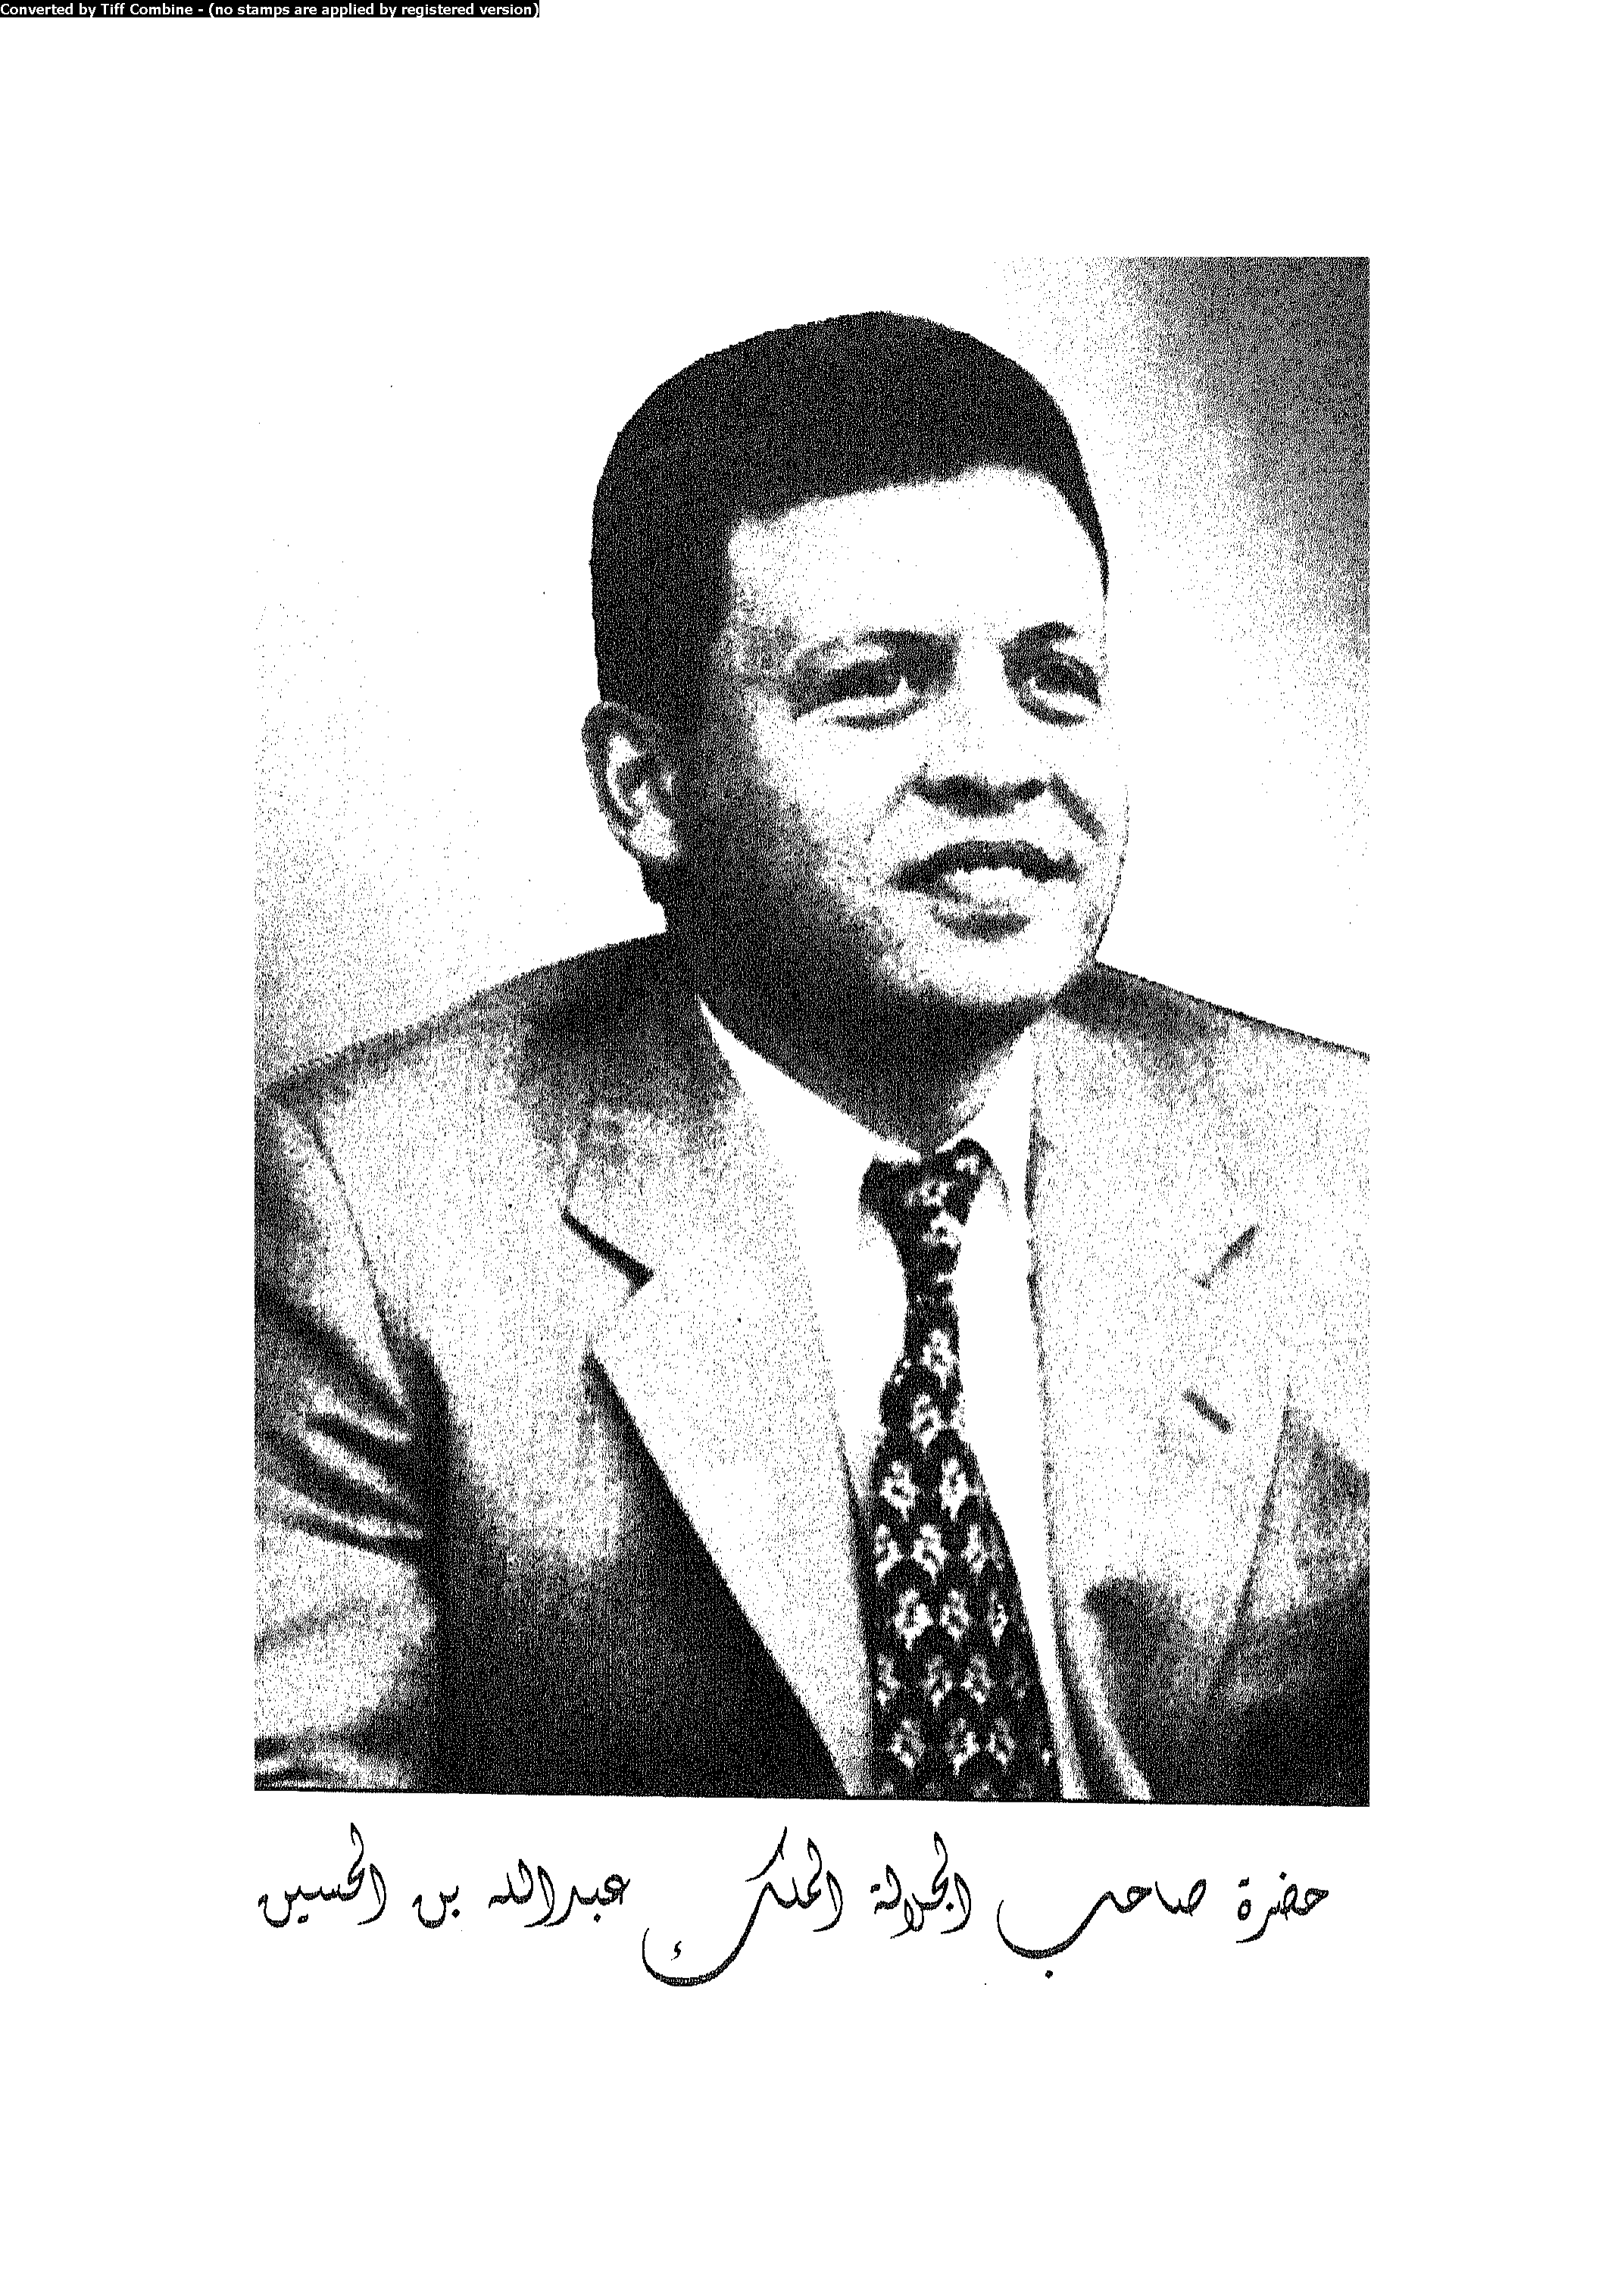 Converted by Tiff Combine - (no stamps are applied by registered version)
حضرة صاحب الجلالة الملك عبدالله بن الحسين